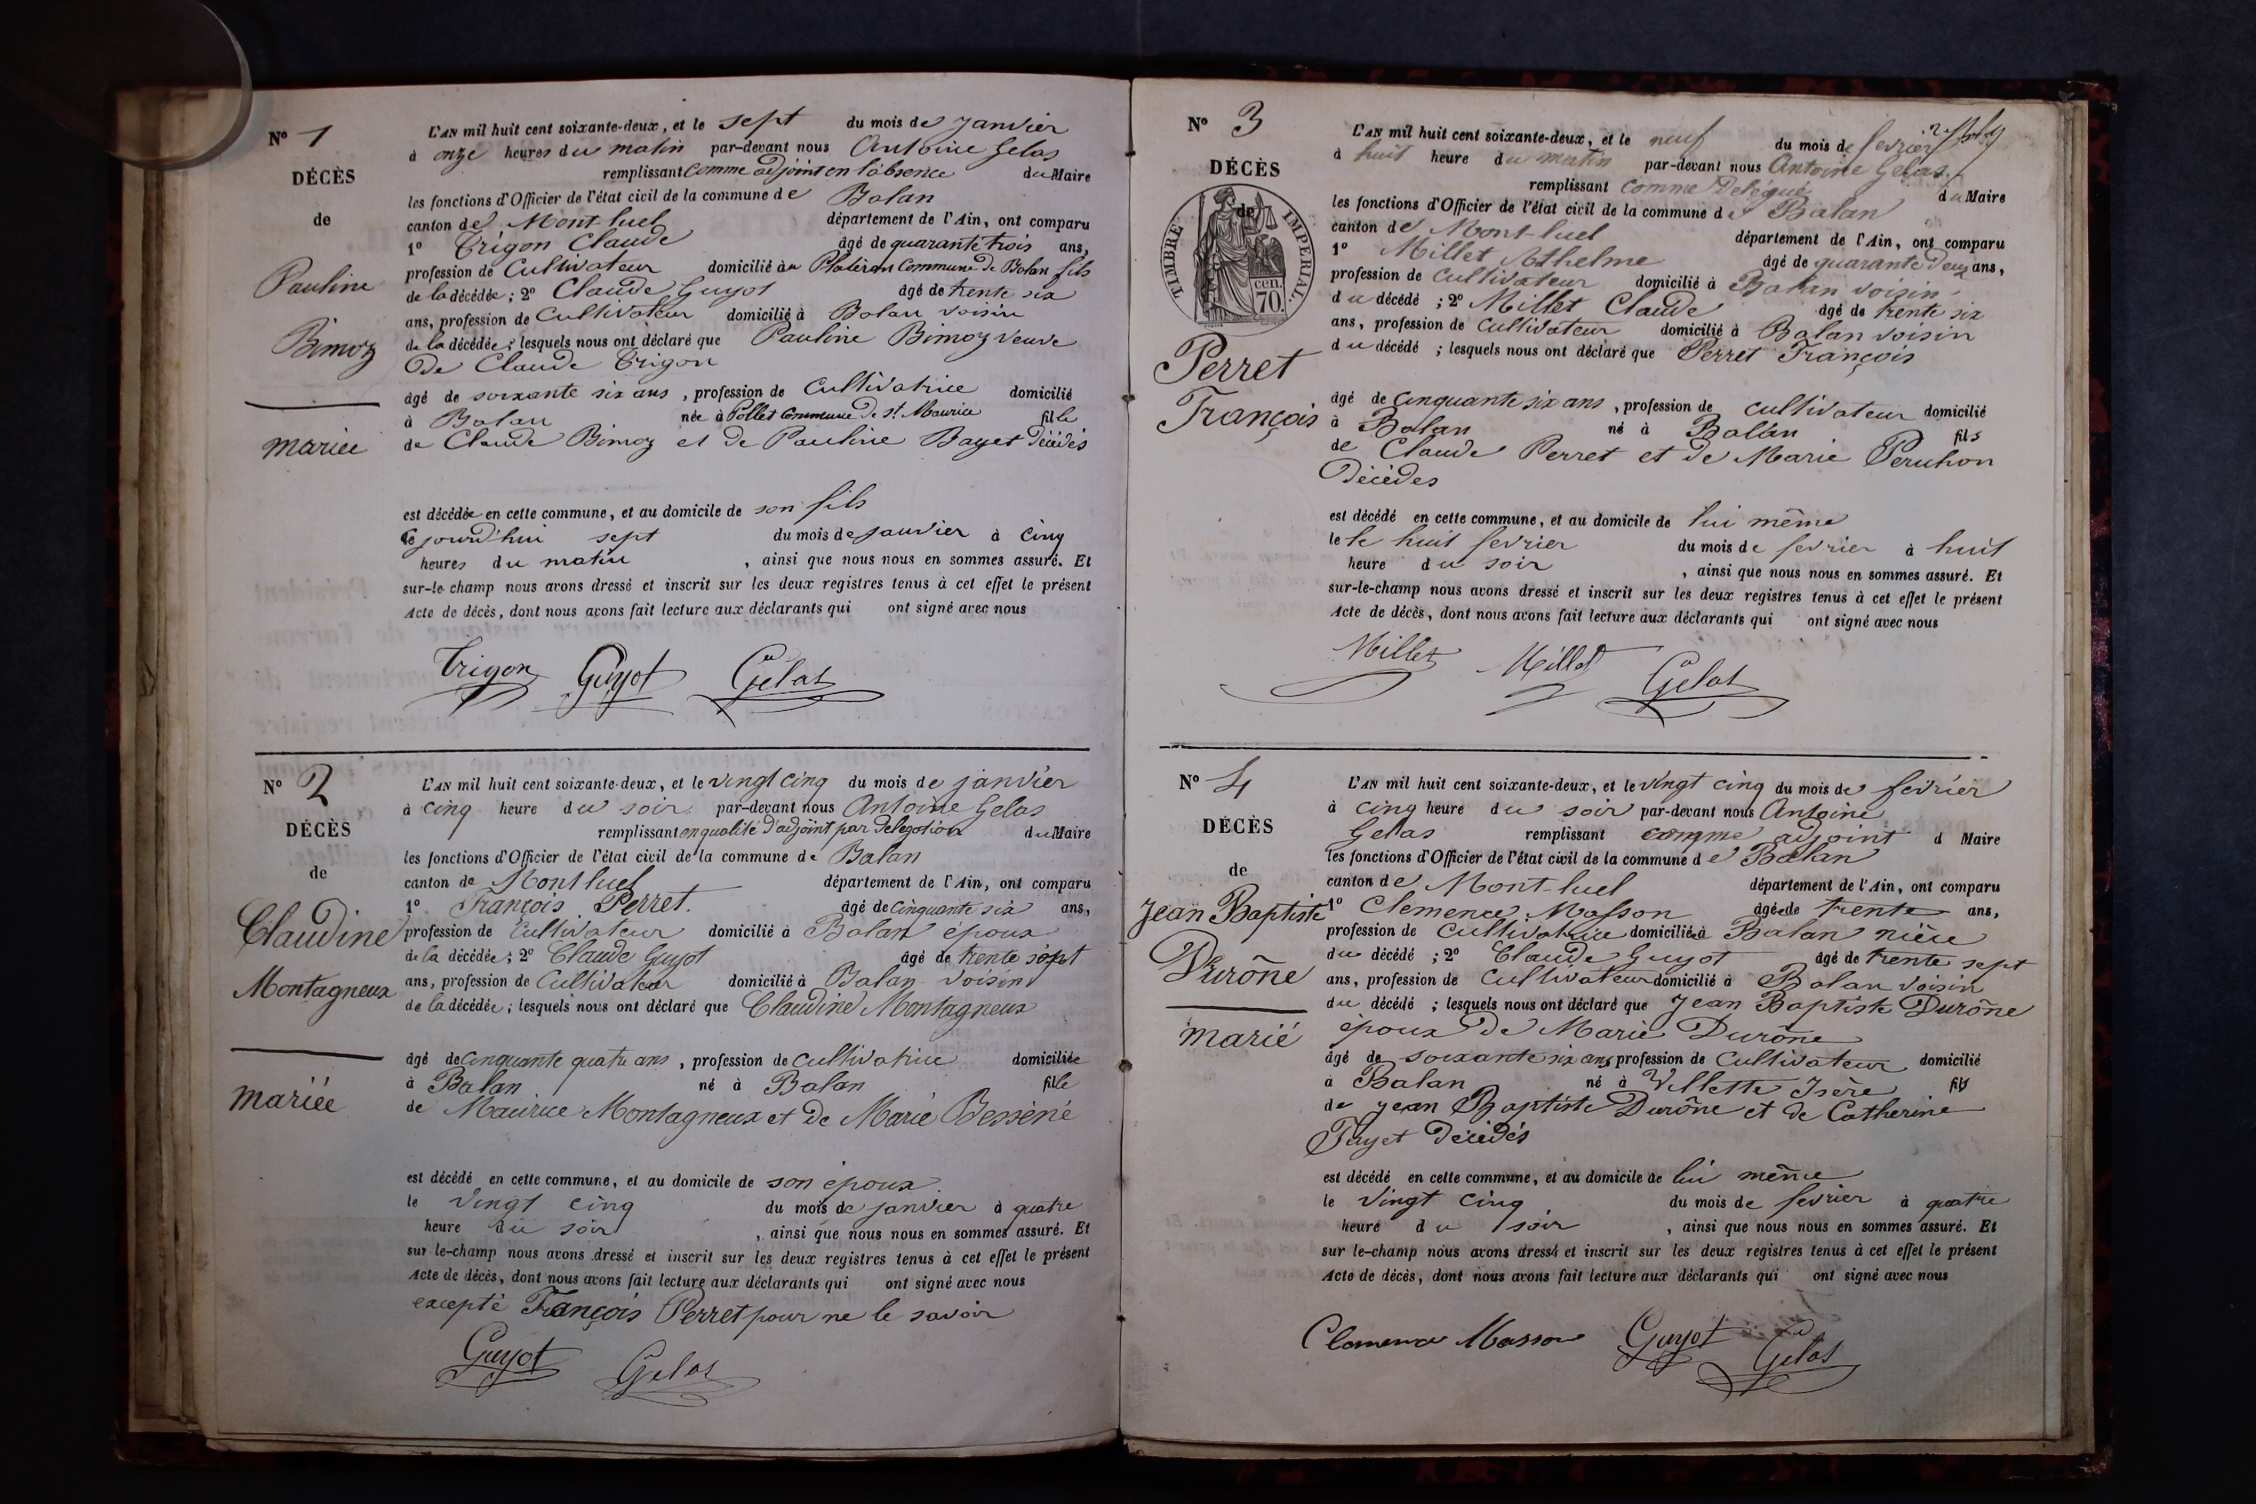 N° 1
DÉCÈS
de
Pauline
Bimoz
mariée
L'AN mil huit cent soixante-deux, et le sept du mois de janvier
à onze heures du matin par-devant nous Antoine Gelas
remplissant comme adjoint en l'absence du Maire
les fonctions d'Officier de l'état civil de la commune de Balan
canton de Mont-luel département de l'Ain, ont comparu
1° Trigon Claude âgé de quarante trois ans,
profession de Cultivateur domicilié au Commune de Balan fils
de la décédée; 2° Claude Guyot âgé de trente six
ans, profession de Cultivateur domicilié à Balan voisin
de la décédée; lesquels nous ont déclaré que Pauline Bimoz veuve
De Claude Trigon
âgé de soixante six ans, profession de Cultivatrice domicilié
à Balan née à Pollet Commune De St Maurice fille
de Claude Bimoz et de Pauline Bayet Décédés
est décédée en cette commune, et au domicile de son fils
ce jourd'hui sept du mois de janvier à cinq
heures du matin, ainsi que nous nous en sommes assuré. Et
sur-le-champ nous avons dressé et inscrit sur les deux registres tenus à cet effet le présent
Acte de décès, dont nous avons fait lecture aux déclarants qui ont signé avec nous
Trigon Guyot Gelas
N° 2
DÉCÈS
de
Claudine
Montagneux
mariée
L'AN mil huit cent soixante-deux, et le vingt cinq du mois de janvier
à cinq heure du soir par-devant nous Antoine Gelas
remplissant en qualité d'adjoint par Delegation du Maire
les fonctions d'Officier de l'état civil de la commune de Balan
canton de Montluel département de l'Ain, ont comparu
1° François Perret. âgé de cinquante six ans,
profession de Cultivateur domicilié à Balan époux
de la décédée; 2° Claude Guyot âgé de trente sept
ans, profession de Cultivateur domicilié à Balan voisin
de la décédée; lesquels nous ont déclaré que Claudine Montagneux
âgé de cinquante quatre ans, profession de cultivatrice domiciliée
à Balan né à Balan fille
de Maurice Montagneux et De Marie Besséné
est décédé en cette commune, et au domicile de son époux
le vingt cinq du mois de janvier à quatre
heure du soir, ainsi que nous nous en sommes assuré. Et
sur le-champ nous avons dressé et inscrit sur les deux registres tenus à cet effet le présent
Acte de décès, dont nous avons fait lecture aux déclarants qui ont signé avec nous
excepté François Perret pour ne le savoir
Guyot Gelas
N° 3
DÉCÈS
de
TIMBRE IMPERIAL.
70 cen.
Perret
François
L'AN mil huit cent soixante-deux, et le neuf du mois de fevrier
à huit heure du matin par-devant nous Antoine Gelas
remplissant Comme Delégué du Maire
les fonctions d'Officier de l'état civil de la commune de Balan
canton de Mont-luel département de l'Ain, ont comparu
1° Millet Athelme âgé de quarante deux ans,
profession de Cultivateur domicilié à Balan voisin
du décédé; 2° Millet Claude âgé de trente six
ans, profession de Cultivateur domicilié à Balan voisin
du décédé; lesquels nous ont déclaré que Perret François
âgé de Cinquante six ans, profession de cultivateur domicilié
à Balan né à Balan fils
de Claude Perret et de Marie Peruhon
Décédes
est décédé en cette commune, et au domicile de lui même
le le huit fevrier du mois de fevrier à huit
heure du soir, ainsi que nous nous en sommes assuré. Et
sur-le-champ nous avons dressé et inscrit sur les deux registres tenus à cet effet le présent
Acte de décès, dont nous avons fait lecture aux déclarants qui ont signé avec nous
Millet Millet Gelas
N° 4
DÉCÈS
de
Jean Baptiste
Durône
marié
L'AN mil huit cent soixante-deux, et le vingt cinq du mois de fevrier
à cinq heure du soir par-devant nous Antoine
Gelas remplissant comme adjoint d Maire
les fonctions d'Officier de l'état civil de la commune de Balan
canton de Mont-luel département de l'Ain, ont comparu
1° Clemence Masson âgée de trente ans,
profession de Cultivatrice domiciliée à Balan nièce
du décédé; 2° Claude Guyot âgé de trente sept
ans, profession de Cultivateur domicilié à Balan voisin
du décédé; lesquels nous ont déclaré que Jean Baptiste Durône
époux De Marie Durône
âgé de soixante six ans, profession de Cultivateur domicilié
à Balan né à Villette Isère fils
de Jean Baptiste Durône et de Catherine
Fayet Décédés
est décédé en cette commune, et au domicile de lui même
le vingt cinq du mois de fevrier à quatre
heure du soir, ainsi que nous nous en sommes assuré. Et
sur le-champ nous avons dressé et inscrit sur les deux registres tenus à cet effet le présent
Acte de décès, dont nous avons fait lecture aux déclarants qui ont signé avec nous
Clemence Masson Guyot Gelas